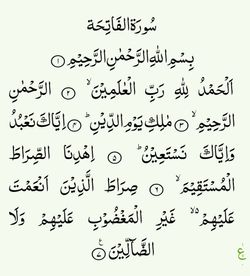 سُورَةُ الْفَاتِحَة
بِسْمِ اللهِ الرَّحْمٰنِ الرَّحِيْمِ ۝١
اَلْحَمْدُ لِلّٰهِ رَبِّ الْعٰلَمِيْنَ ۙ ۝٢ الرَّحْمٰنِ
الرَّحِيْمِ ۙ ۝٣ مٰلِكِ يَوْمِ الدِّيْنِ ۗ ۝٤ اِيَّاكَ نَعْبُدُ
وَاِيَّاكَ نَسْتَعِيْنُ ۗ ۝٥ اِهْدِنَا الصِّرَاطَ
الْمُسْتَقِيْمَ ۙ ۝٦ صِرَاطَ الَّذِيْنَ اَنْعَمْتَ
عَلَيْهِمْ ۙ۬ غَيْرِ الْمَغْضُوْبِ عَلَيْهِمْ وَلَا
الضَّاۤلِّيْنَ ۝٧ ع